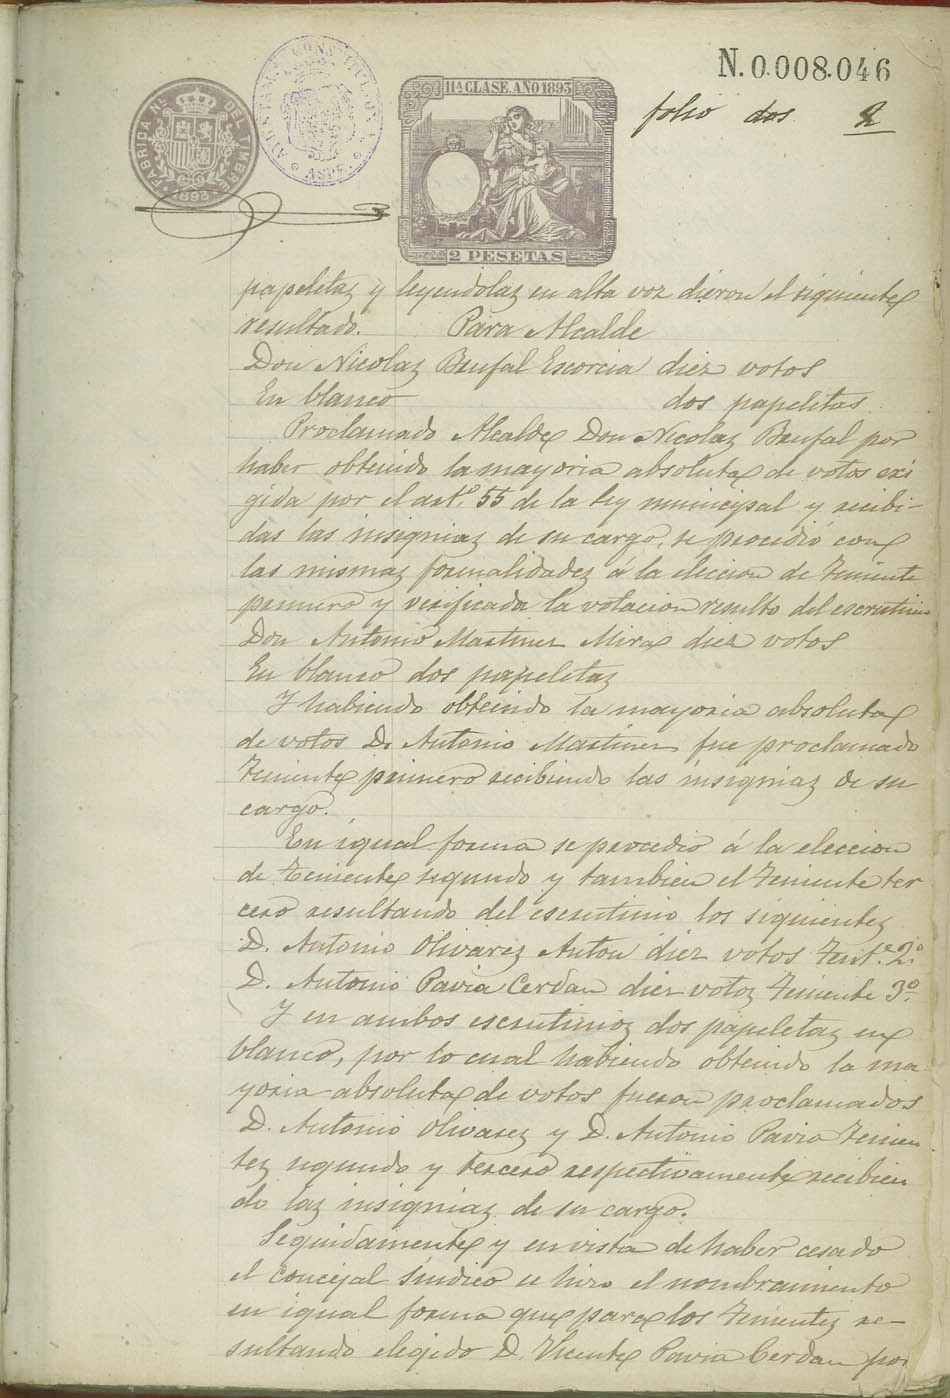 N. 0.008.046
FABRICA Nº. DEL TIMBRE
1893
AYUNTAMº CONSTITUCIONAL
ASPE
11ª CLASE. AÑO 1893
2 PESETAS
folio dos 2
papeletas y leyendolas en alta voz dieron el siguiente
resultado. Para Alcalde
Don Nicolas Bufal Escorcia diez votos
En blanco dos papeletas
Proclamado Alcalde Don Nicolas Bufal por
haber obtenido la mayoria absoluta de votos exi
gida por el artº. 55 de la ley municipal y recibi-
das las insignias de su cargo, se procedió con
las mismas formalidades á la eleccion de Teniente
primero y verificada la votacion resulto del escrutinio
Don Antonio Martinez Mira diez votos
En blanco dos papeletas
Y habiendo obtenido la mayoria absoluta
de votos D. Antonio Martinez fue proclamado
Teniente primero recibiendo las insignias de su
cargo.
En igual forma se procedio á la eleccion
de Teniente segundo y tambien el Teniente ter
cero resultando del escrutinio los siguientes
D. Antonio Olivarez Anton diez votos Tente. 2º.
D. Antonio Pavia Cerdan diez votos Teniente 3º.
Y en ambos escrutinios dos papeletas en
blanco, por lo cual habiendo obtenido la ma
yoria absoluta de votos fueron proclamados
D. Antonio Olivarez y D. Antonio Pavia Tenien
tes segundo y tercero respectivamente recibien
do las insignias de su cargo.
Seguidamente y en vista de haber cesado
el concejal Sindico se hizo el nombramiento
en igual forma que para los Tenientes re-
sultando elegido D. Vicente Pavia Cerdan por